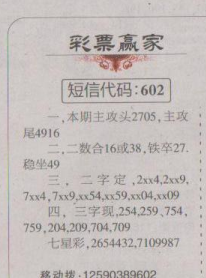 彩票赢家
短信代码:602
一,本期主攻头2705,主攻
尾4916
二,二数合16或38,铁卒27.
稳坐49
三,二字定,2xx4,2xx9,
7xx4,7xx9,xx54,xx59,xx04,xx09
四,三字现,254,259,754,
759,204,209,704,709
七星彩,2654432,7109987
移动拨:12590389602